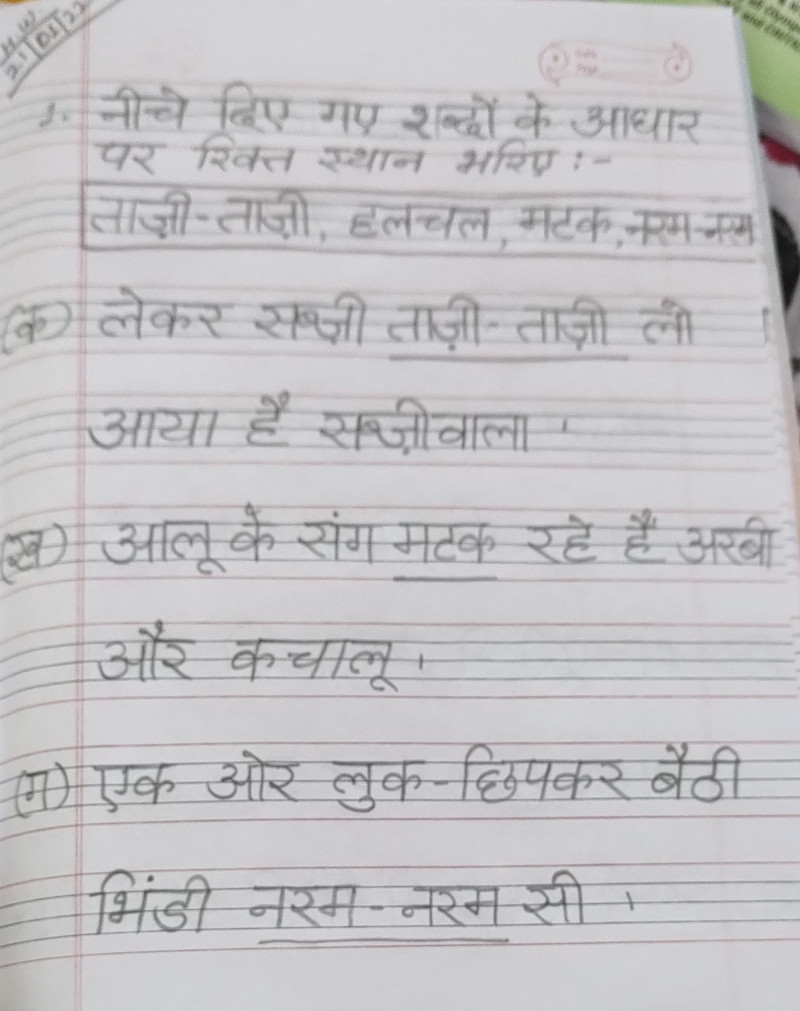 H.W
21/05/22
1. नीचे दिए गए शब्दों के आधार
पर रिक्त स्थान भरिए :-
ताज़ी-ताज़ी, हलचल, मटक, नरम-नरम
(क) लेकर सब्ज़ी ताज़ी-ताज़ी लो
आया है सब्ज़ीवाला ।
(ख) आलू के संग मटक रहे हैं अरबी
और कचालू ।
(ग) एक ओर लुक-छिपकर बैठी
भिंडी नरम-नरम सी ।